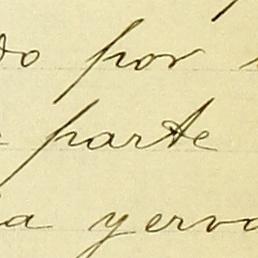 do por
parte
a yerva